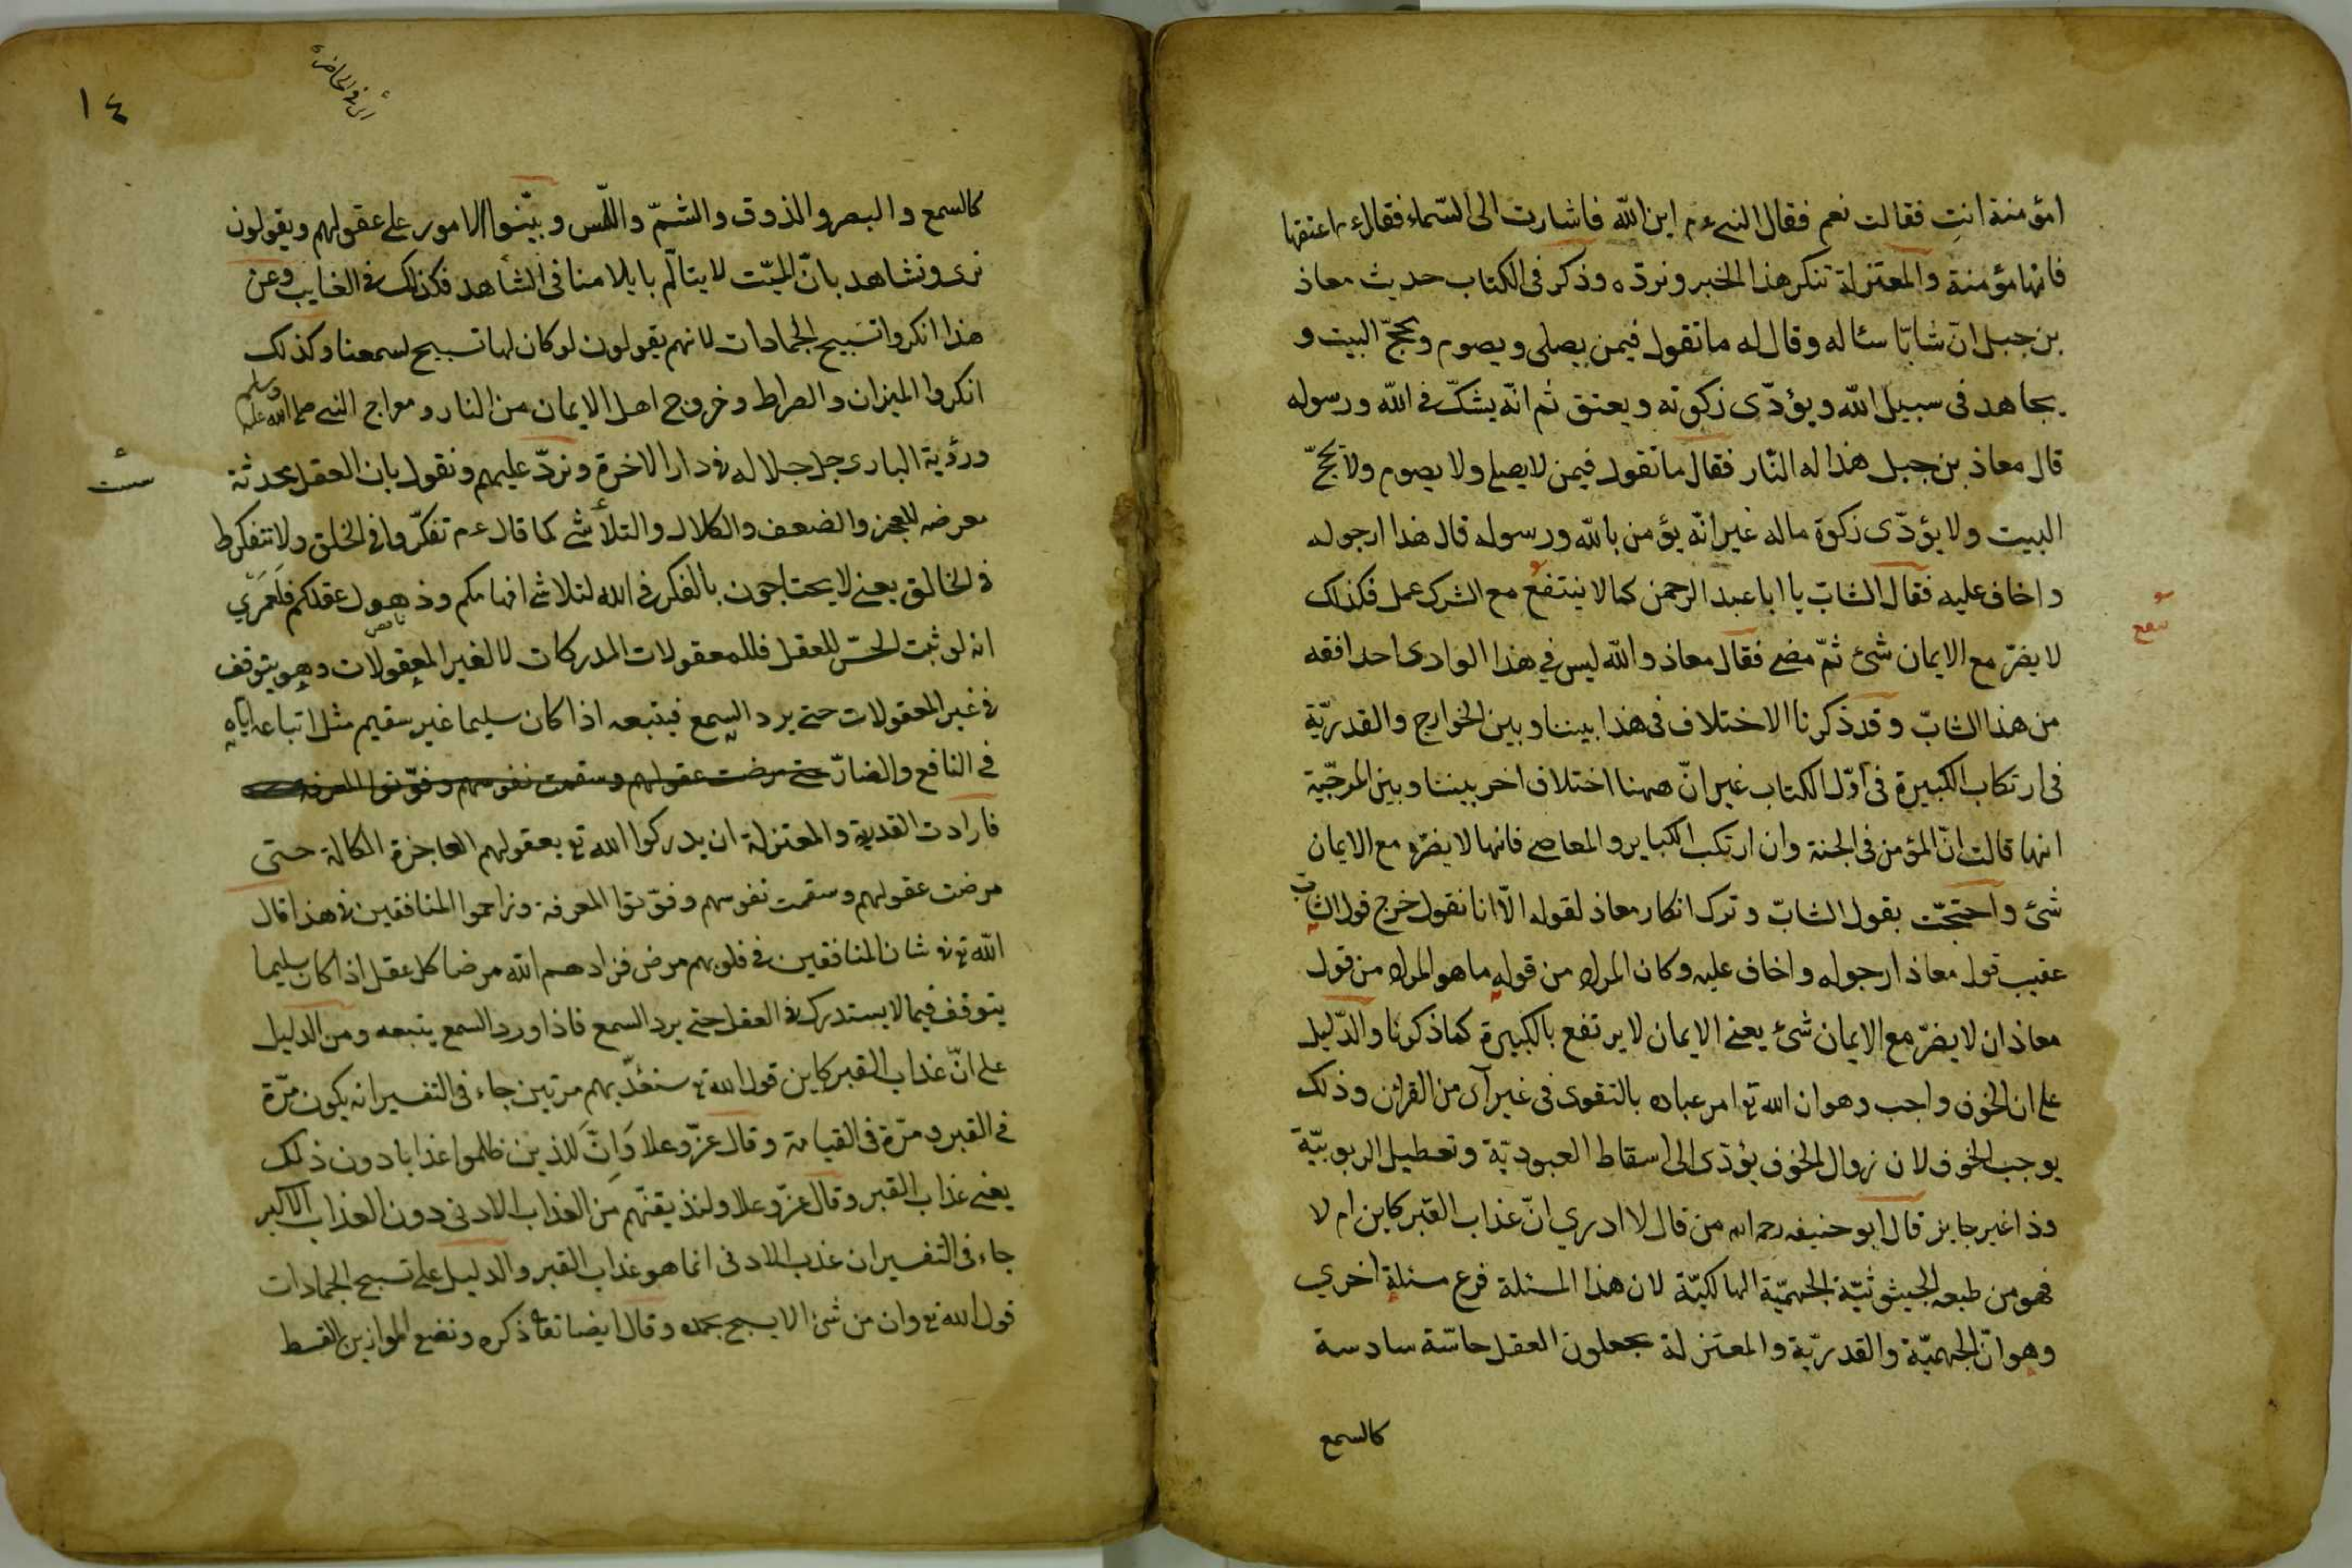 امؤمنة انتِ فقالت نعم فقال النبي ءم اين الله فاشارت الى السّماء فقال ءم اعتقها
فانها مؤمنة والمعتزلة تنكر هذا الخبر ونردّه وذكر فى الكتاب حديث معاذ
بن جبل انّ شابّا سئاله وقال له ما تقول فيمن يصلى ويصوم ويحجّ البيت و
يجاهد فى سبيل الله ويؤدّى زكوته ويعتق ثم انّه يشكّ فى الله ورسوله
قال معاذ بن جبل هذا له النّار فقال ما تقول فيمن لا يصلي ولا يصوم ولا يحجّ
البيت ولا يؤدّى زكوة ماله غير انّه يؤمن بالله ورسوله قال هذا ارجو له
واخاف عليه فقال الشابّ يا ابا عبد الرحمن كما لا ينتفع مع الشرك عمل فكذلك
ينفع
لا يضرّ مع الايمان شئ ثمّ مضى فقال معاذ والله ليس في هذا الوادى احد افقه
من هذا الشابّ وقد ذكرنا الاختلاف فى هذا بيننا وبين الخوارج والقدريّة
فى ارتكاب الكبيرة فى اوّل الكتاب غير انّ ههنا اختلاف اخر بيننا وبين المرجيّة
انها قالت انّ المؤمن فى الجنة وان ارتكب الكباير والمعاصي فانها لا يضرّه مع الايمان
شئ واحتجّت بقول الشابّ وترك انكار معاذ لقوله الّا انا نقول خرج قول الشاب
عقيب قول معاذ ارجو له واخاف عليه وكان المراد من قوله ما هو المراد من قول
معاذ ان لا يضرّ مع الايمان شئ يعني الايمان لا يرتفع بالكبيرة كما ذكرنا والدّليل
على ان الخوف واجب وهو ان الله تع امر عباده بالتقوى فى غير آى من القرائن وذلك
يوجب الخوف لان زوال الخوف يؤدّى الى اسقاط العبوديّة وتعطيل الربوبيّة
وذا غير جايز قال ابو حنيفه رحمه الله من قال لا ادري انّ عذاب القبر كاين ام لا
فهو من طبعه الجيثوثيّة الجهميّة الهالكيّة لان هذا المسئلة فرع مسئلة اخري
وهو انّ الجهميّة والقدريّة والمعتزلة يجعلون العقل حاسّة سادسة
كالسمع
١٤
كالسمع والبصر والذوق والشمّ واللّمس وبيّنوا الامور على عقولهم ويقولون
نرى ونشاهد بانّ الميّت لا يتالّم بايلامنا فى الشاهد فكذلك في الغايب وعن
هذا انكروا تسبيح الجمادات لانهم يقولون لو كان لها تسبيح لسمعنا وكذلك
انكروا الميزان والصراط وخروج اهل الايمان من النار ومعراج النبي صلى الله عليه وسلم
ورؤية البارى جل جلاله في دار الاخرة ونردّ عليهم ونقول بان العقل محدثة
معرضه للعجز والضعف والكلال والتلاشي كما قال ءم تفكّروا في الخلق ولا تتفكروا
في الخالق يعني لا يحتاجون بالفكر في الله لتلاشي افهامكم وذهول عقلكم فلَعَمْري
انه لو ثبت الحسّ للعقل فللمعقولات المدركات لا لغير المعقولات وهو يتوقف
في غير المعقولات حتى يرد السمع فيتبعه اذا كان سليما غير سقيم مثل اتباعه اياه
في النافع والضارّ حتى مرضت عقولهم وسقمت نفوسهم وفوّتوا المعرفة
فارادت القدرية والمعتزلة ان يدركوا الله تع بعقولهم العاجزة الكالة حتى
مرضت عقولهم وسقمت نفوسهم وفوّتوا المعرفة وزاحموا المنافقين في هذا قال
الله تع في شان المنافقين في قلوبهم مرض فزادهم الله مرضا كل عقل اذا كان سليما
يتوقف فيما لا يستدرك في العقل حتى يرد السمع فاذا ورد السمع يتبعه ومن الدليل
على انّ عذاب القبر كاين قول الله تع سنعذّبهم مرتين جاء فى التفسير انه يكون مرّة
في القبر ومرّة فى القيامة وقال عزّ وعلا وَاِنَّ للذين ظلموا عذابا دون ذلك
يعنى عذاب القبر وقال عزّ وعلا ولنذيقنّهم من العذاب الادنى دون العذاب الاكبر
جاء فى التفسير ان عذب الادنى انما هو عذاب القبر والدليل على تسبيح الجمادات
قول الله تع وان من شئ الا يسبح بحمده وقال ايضا تعا ذكره ونضع الموازين القسط